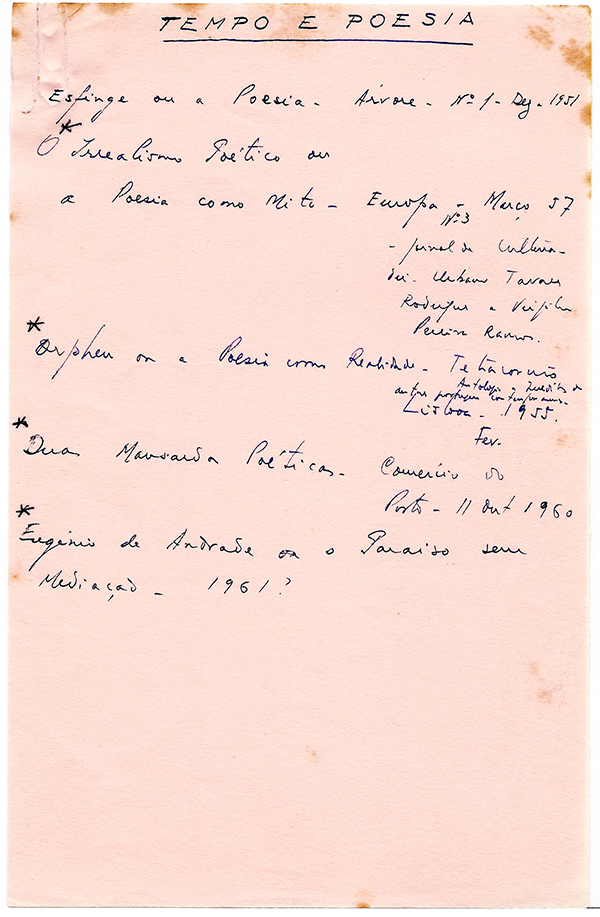 TEMPO E POESIA
Esfinge ou a Poesia - Árvore - Nº 1 - Dez - 1951
*
O Irrealismo Poético ou
a Poesia como Mito - Europa - Março 57
Nº 3
- Jornal de Cultura -
dir. Urbano Tavares
Rodrigues e Virgílio
Pereira Ramos.
*
Orpheu ou a Poesia como Realidade - Tetracórnio
Antologia de Inéditos de
autores portugueses contemporâneos -
Lisboa - 1955.
Fev.
*
Duas Mansardas Poéticas - Comércio do
Porto - 11 Out 1960
*
Eugénio de Andrade ou o Paraíso sem
Mediação - 1961?